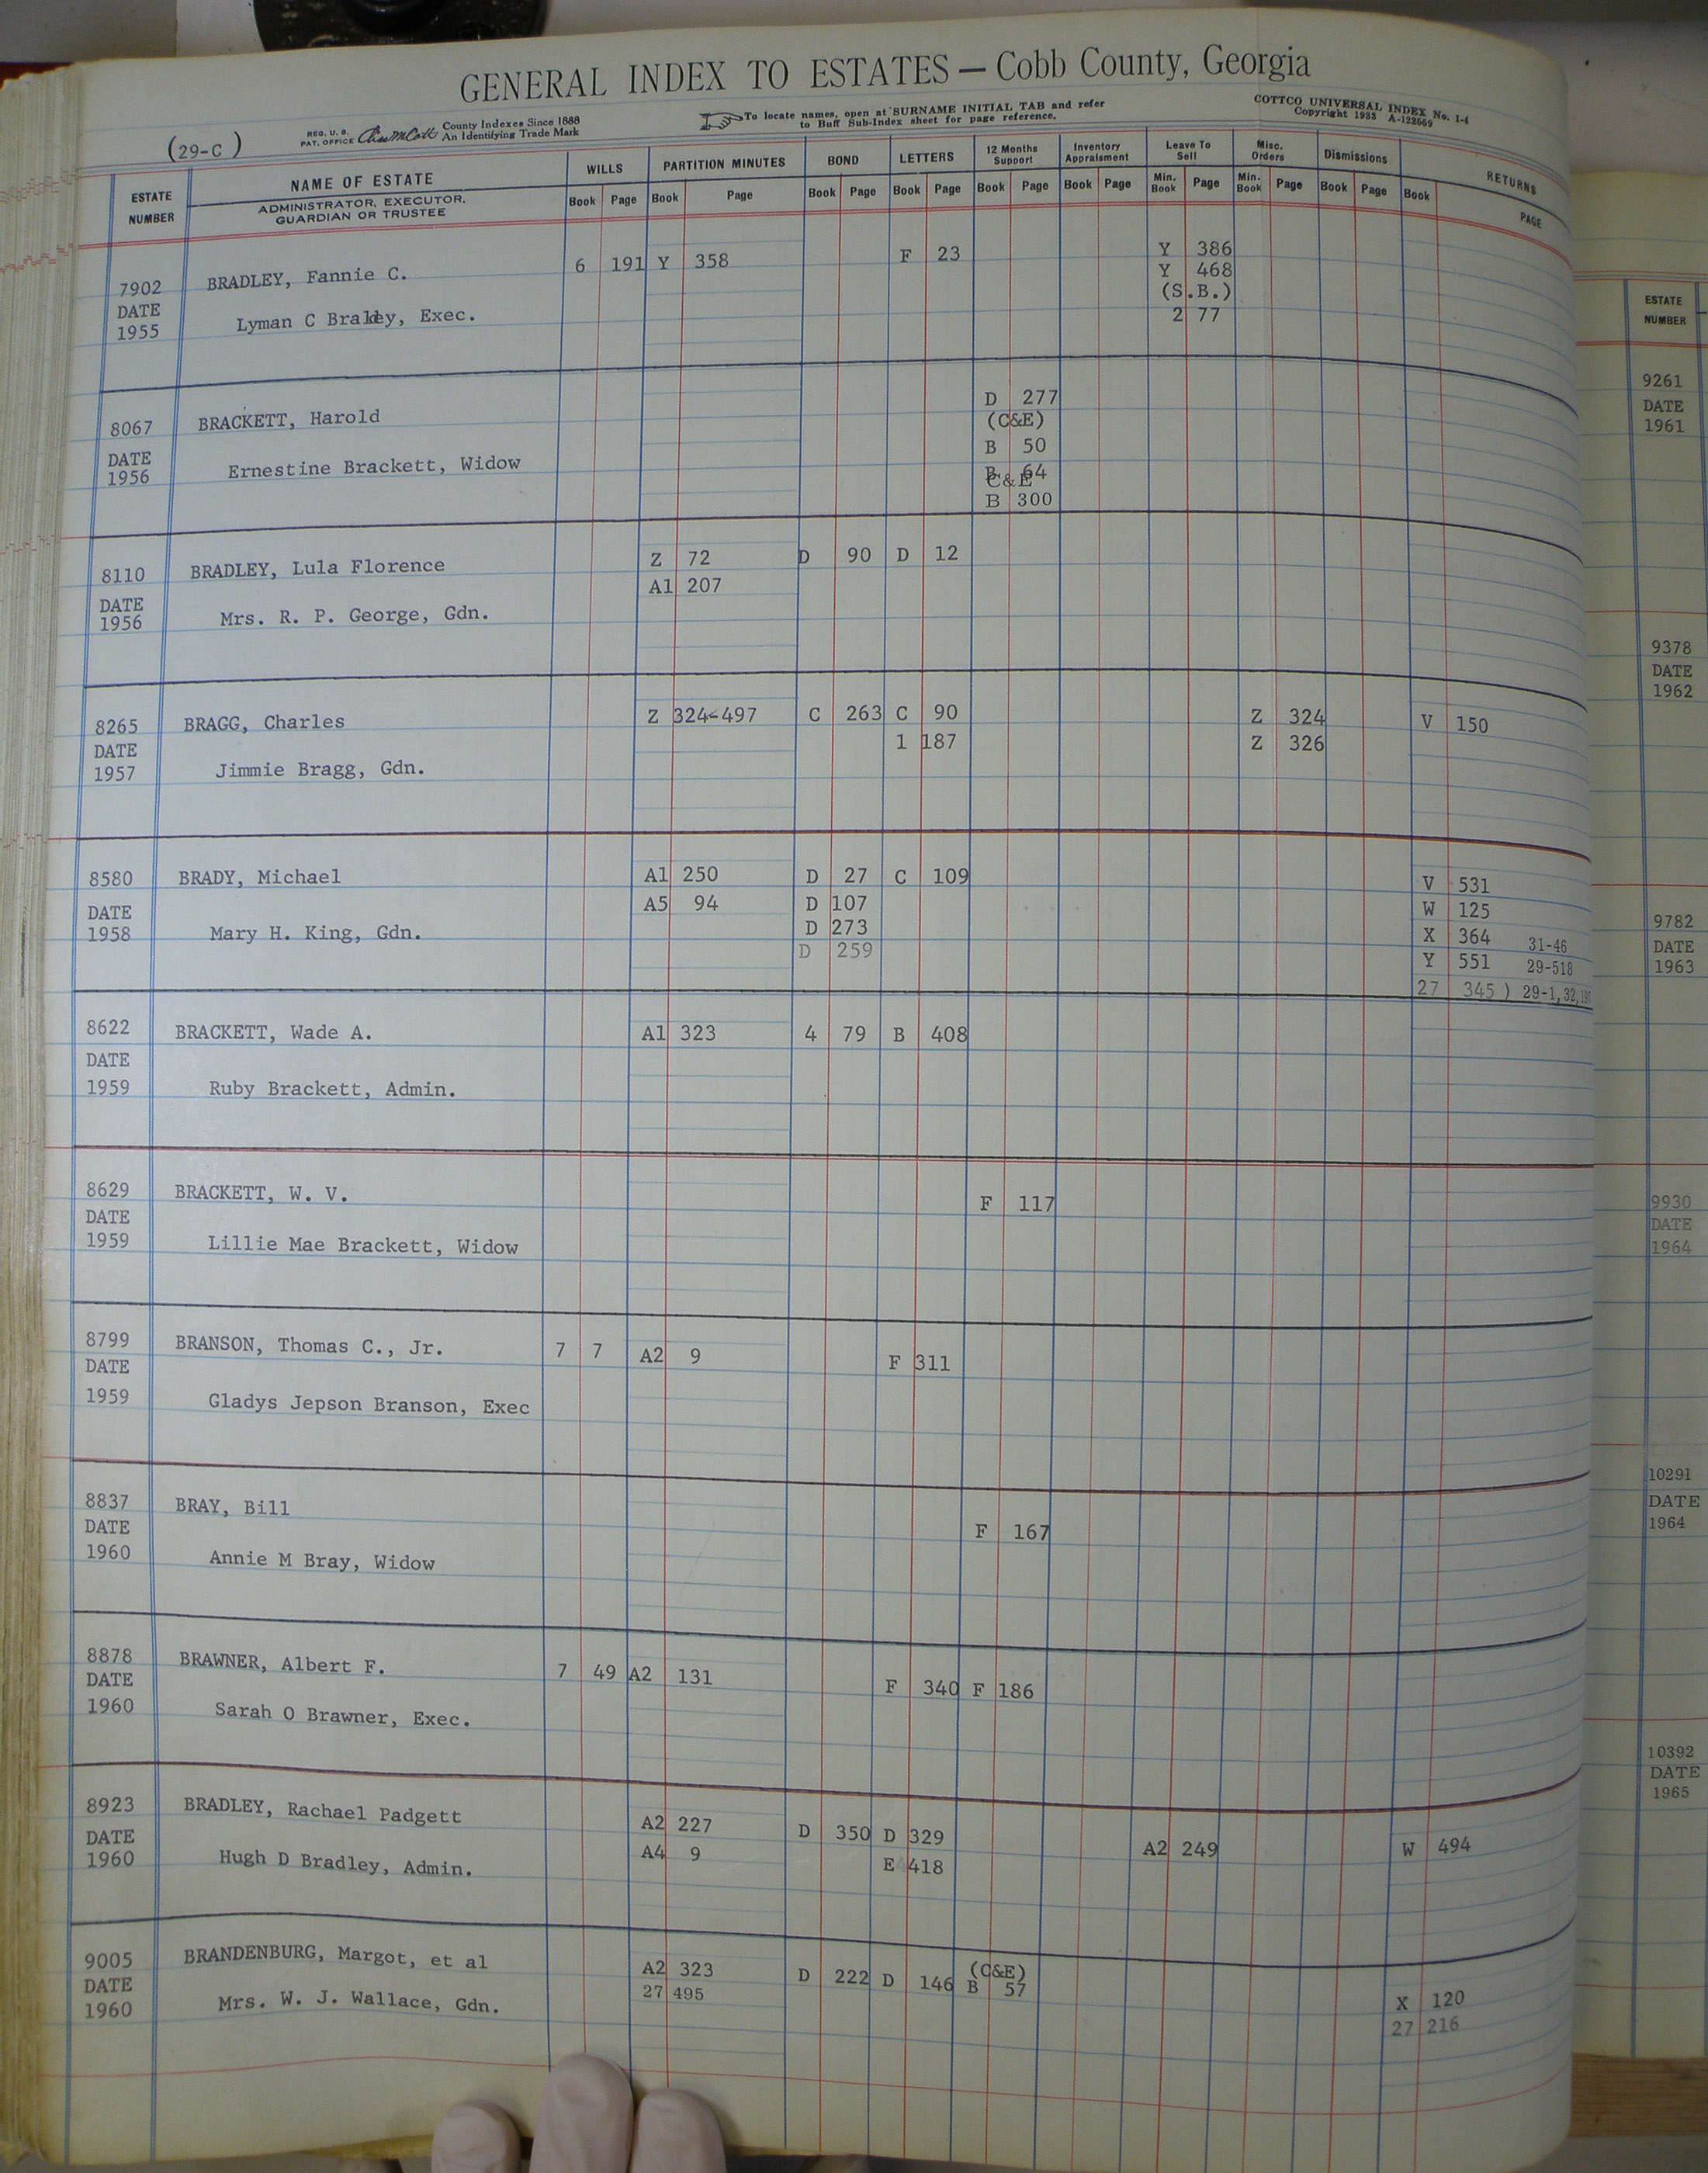 GENERAL INDEX TO ESTATES — Cobb County, Georgia
(29-C)
REG. U. S. PAT. OFFICE County Indexes Since 1888
An Identifying Trade Mark
To locate names, open at SURNAME INITIAL TAB and refer
to Buff Sub-Index sheet for page reference.
COTTCO UNIVERSAL INDEX No. 1-4
Copyright 1933 A-122669
ESTATE NUMBER NAME OF ESTATE WILLS PARTITION MINUTES BOND LETTERS 12 Months Support Inventory Appraisment Leave To Sell Misc. Orders Dismissions RETURNS
ADMINISTRATOR, EXECUTOR, GUARDIAN OR TRUSTEE Book Page Book Page Book Page Book Page Book Page Book Page Min. Book Page Min. Book Page Book Page Book PAGE
7902 BRADLEY, Fannie C. 6 191 Y 358 F 23 Y 386
DATE Y 468
1955 Lyman C Bradley, Exec. (S.B.)
2 77
8067 BRACKETT, Harold D 277
DATE (C&E)
1956 Ernestine Brackett, Widow B 50
B 64
C&E
B 300
8110 BRADLEY, Lula Florence Z 72 D 90 D 12
DATE A1 207
1956 Mrs. R. P. George, Gdn.
8265 BRAGG, Charles Z 324-497 C 263 C 90 Z 324 V 150
DATE 1 187 Z 326
1957 Jimmie Bragg, Gdn.
8580 BRADY, Michael A1 250 D 27 C 109 V 531
DATE A5 94 D 107 W 125
1958 Mary H. King, Gdn. D 273 X 364 31-46
D 259 Y 551 29-518
27 345 ) 29-1,32,
8622 BRACKETT, Wade A. A1 323 4 79 B 408
DATE
1959 Ruby Brackett, Admin.
8629 BRACKETT, W. V. F 117
DATE
1959 Lillie Mae Brackett, Widow
8799 BRANSON, Thomas C., Jr. 7 7 A2 9 F 311
DATE
1959 Gladys Jepson Branson, Exec
8837 BRAY, Bill F 167
DATE
1960 Annie M Bray, Widow
8878 BRAWNER, Albert F. 7 49 A2 131 F 340 F 186
DATE
1960 Sarah O Brawner, Exec.
8923 BRADLEY, Rachael Padgett A2 227 D 350 D 329 A2 249 W 494
DATE A4 9 E 418
1960 Hugh D Bradley, Admin.
9005 BRANDENBURG, Margot, et al A2 323 D 222 D 146 (C&E) B 57 X 120
DATE 27 495 27 216
1960 Mrs. W. J. Wallace, Gdn.
ESTATE
NUMBER
9261
DATE
1961
9378
DATE
1962
9782
DATE
1963
9930
DATE
1964
10291
DATE
1964
10392
DATE
1965